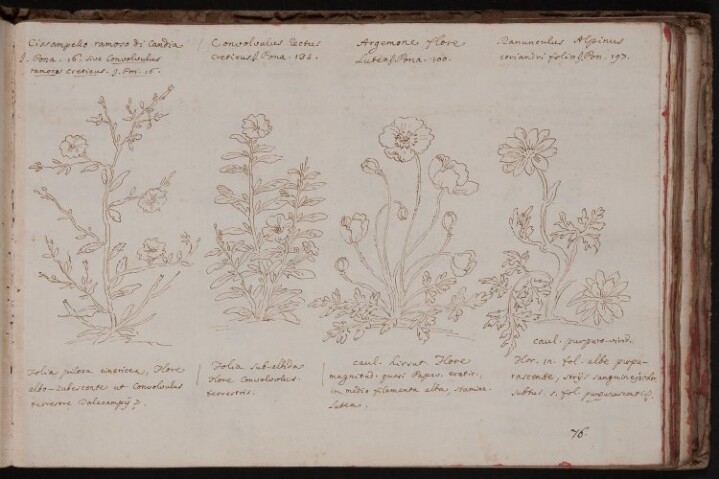 Cisampelio ramoso di Candia
J. Pona. 16. sive Convolvulus
ramosq Creticus. J. Pon. 16.
Convolvulus Rectus
creticus J. Pona. 124.
Argemone flore
Luteo J. Pona. 100.
Ranunculus Alpinus
coriandri folio J. Pon. 193.
Folia pilosa cinericea, Flore
albo-rubescente ut Convolvulus
terrestre Dalecampij
Folia sub-albida
Flore Convolvolus
terrestris.
caul. hirsut Flore
magnitud. quasi Papav. eratic.
in medio filamenta alba, stamina
lutea.
caul. purpuro-virid.
Flor. in fol. albe purpu-
rascente, strijs sanguineis
subtus. s. fol. purpurascent
76